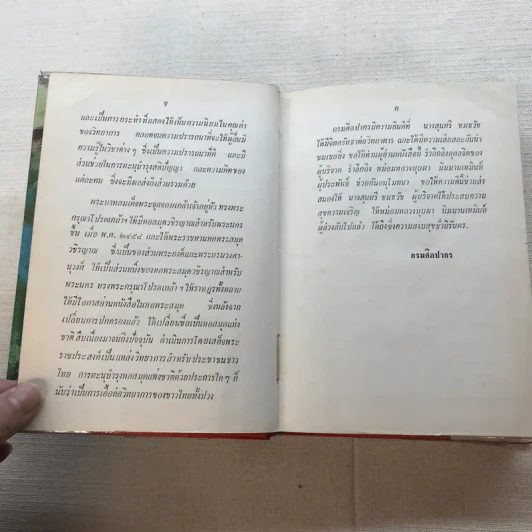 ข
และเป็นการกระทำที่แสดงให้เพิ่มความนิยมในคุณค่า
ของวิทยาการ ตลอดจนความปรารถนาที่จะให้ผู้อื่นมี
ความรู้ในวิชาต่าง ๆ ซึ่งเป็นความปรารถนาที่ดี และมี
ส่วนช่วยในการทะนุบำรุงสติปัญญา และความคิดของ
แต่ละคน ซึ่งจะมีผลถึงส่วนรวมด้วย
พระบาทสมเด็จพระจุลจอมเกล้าเจ้าอยู่หัว ทรงพระ
กรุณาโปรดเกล้าฯ ให้มีหอสมุดวชิรญาณสำหรับพระนคร
ขึ้น เมื่อ พ.ศ. ๒๔๔๘ และได้พระราชทานหอพระสมุด
วชิรญาณ ซึ่งเป็นของส่วนพระองค์และพระบรมวงศา-
นุวงศ์ ให้เป็นส่วนหนึ่งของหอพระสมุดวชิรญาณสำหรับ
พระนคร ทรงพระกรุณาโปรดเกล้า ฯ ให้ราษฎรทั้งหลาย
ได้มีโอกาสอ่านหนังสือในหอพระสมุด ซึ่งหลังจาก
เปลี่ยนการปกครองแล้ว ได้เปลี่ยนชื่อเป็นหอสมุดแห่ง
ชาติ สืบเนื่องมาจนถึงปัจจุบัน ดำเนินการโดยเสด็จพระ
ราชประสงค์เป็นแหล่งวิทยาการสำหรับประชาชนชาว
ไทย การทะนุบำรุงหอสมุดแห่งชาติด้วยประการใด ๆ ก็
นับว่าเป็นการเอื้อต่อวิทยาการของชาวไทยทั้งปวง
ค
กรมศิลปากรมีความยินดีที่ นางสุนทรี ชมธวัช
ได้มีจิตศรัทธาต่อวิทยาการ และได้มีความเสียสละอันน่า
ชมเชยยิ่ง ขอให้ท่านผู้อ่านหนังสือนี้ รำลึกถึงกุศลจิตของ
ผู้บริจาค รำลึกถึง หม่อมหลวงบุบผา นิมมานเหมินท์
ผู้ประพันธ์ ช่วยกันอนุโมทนา ขอให้ความดีนี้ช่วยส่ง
สนองให้ นางสุนทรี ชมธวัช ผู้บริจาคได้ประสบความ
สุขความเจริญ ให้หม่อมหลวงบุบผา นิมมานเหมินท์
ผู้ล่วงลับไปแล้ว ได้ถึงซึ่งความสงบสุขชั่วนิรันดร.
กรมศิลปากร